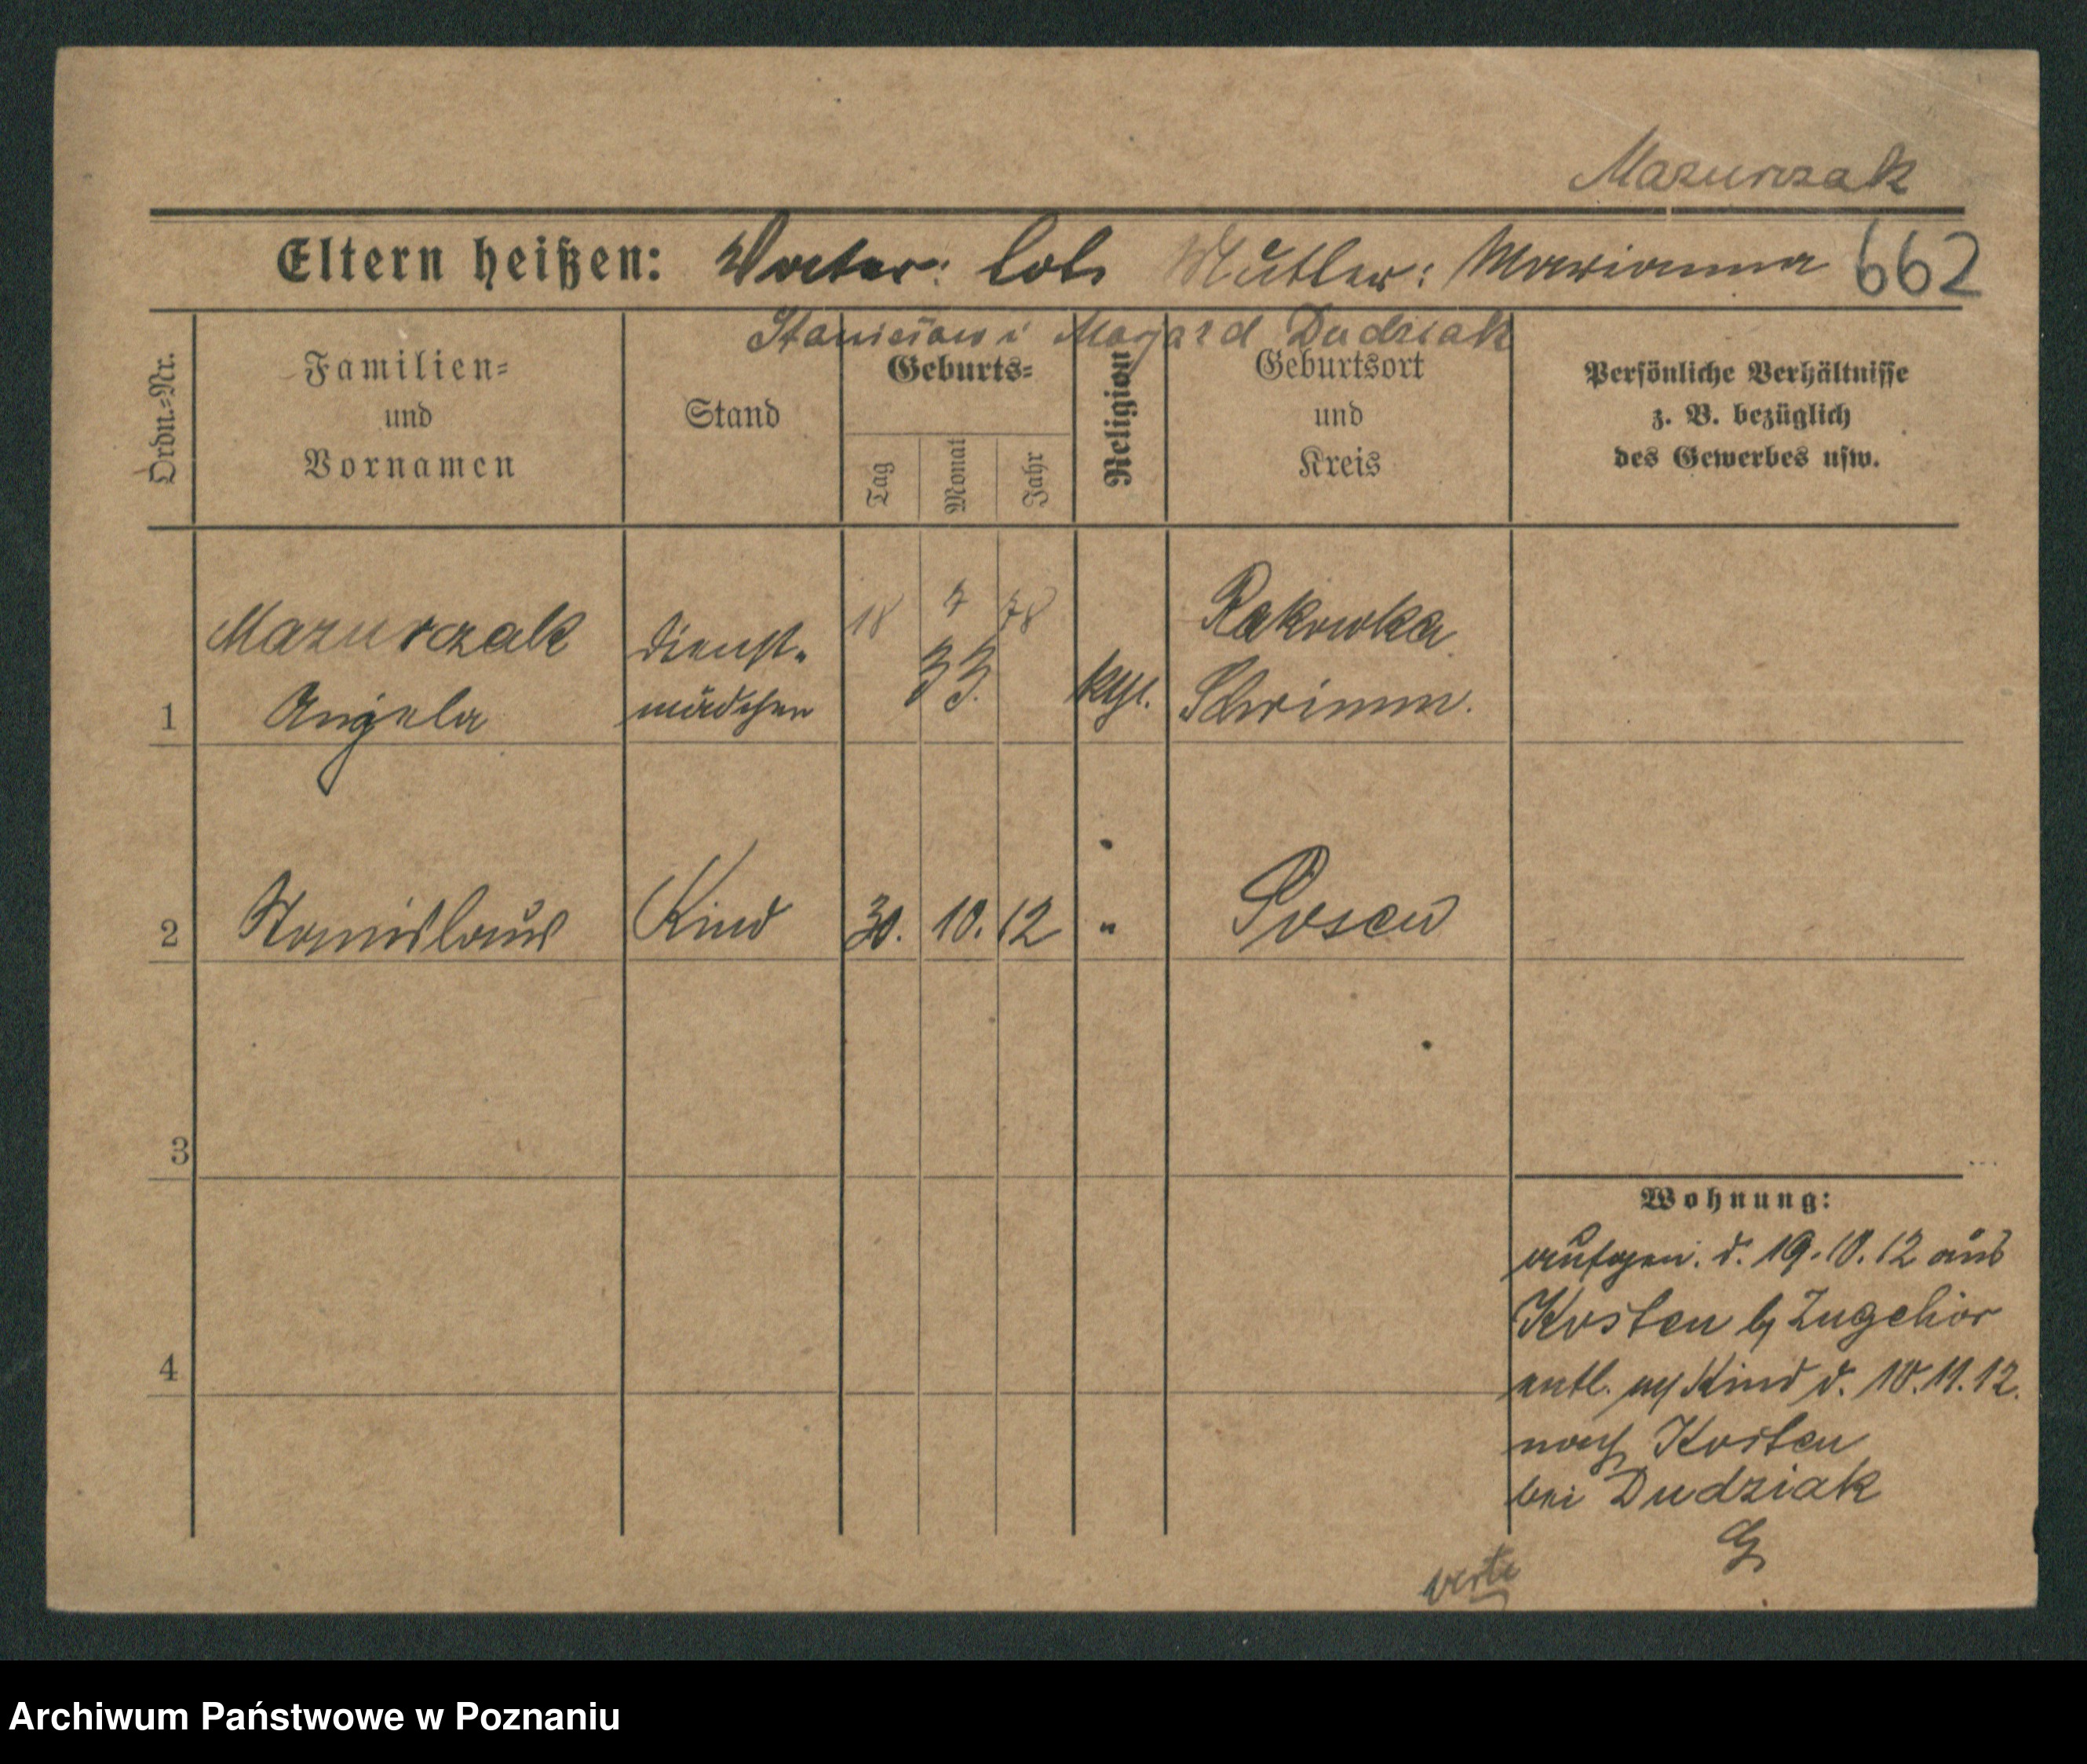 Mazurczak
Eltern heißen: Vater: Mutter: Marianna 662
Dudziak
Ordn.-Nr.
Familien-
und
Vornamen
Stand
Geburts-
Tag
Monat
Jahr
Religion
Geburtsort
und
Kreis
Persönliche Verhältnisse
z. B. bezüglich
des Gewerbes usw.
Mazurczak Dienst- 18 7 78 Rakowka
1 Angela mädchen kath. Schrimm.
2 Stanislaus Kind 30. 10. 12 " Posen
3
Wohnung:
d. 19.10.12 aus
Kosten Zugehör
4 entl. Kind d. 10.11.12.
nach Kosten
bei Dudziak
verte
Archiwum Państwowe w Poznaniu